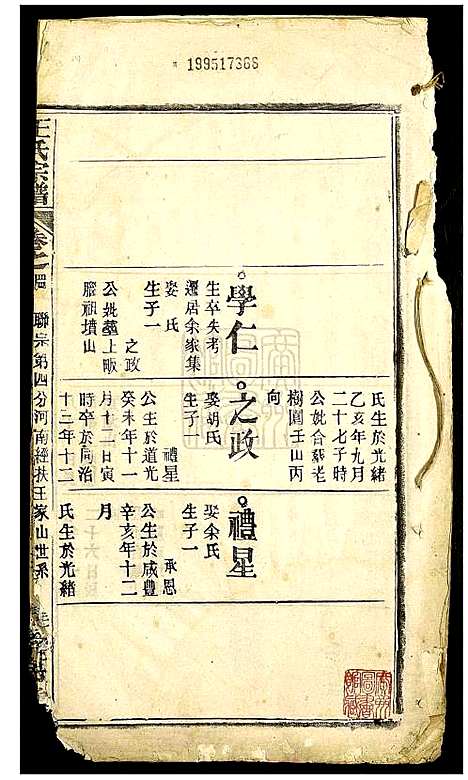 199517368
王氏宗譜
卷之
聯宗第四分河南經扶王家山世系
學仁
生卒失考
遷居余家集
娶氏
生子一
之政
公妣墓上畈
腦祖墳山
氏生於光緒
乙亥年九月
二十七子時
公妣合葬老
樹園壬山丙
向
之政
娶胡氏
生子一
禮星
公生於道光
癸未年十一
月十二日寅
時卒於同治
十三年十二
禮星
娶余氏
生子一
承恩
公生於咸豐
辛亥年十二
月
氏生於光緒